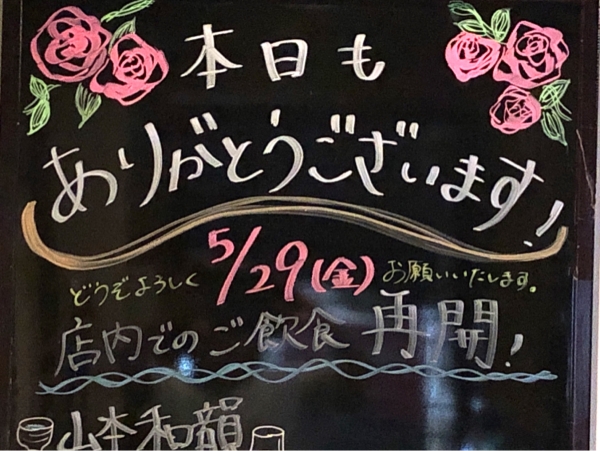 本日も
ありがとうございます!
5/29(金)
どうぞよろしく お願いいたします。
店内でのご飲食 再開!
山本和韻